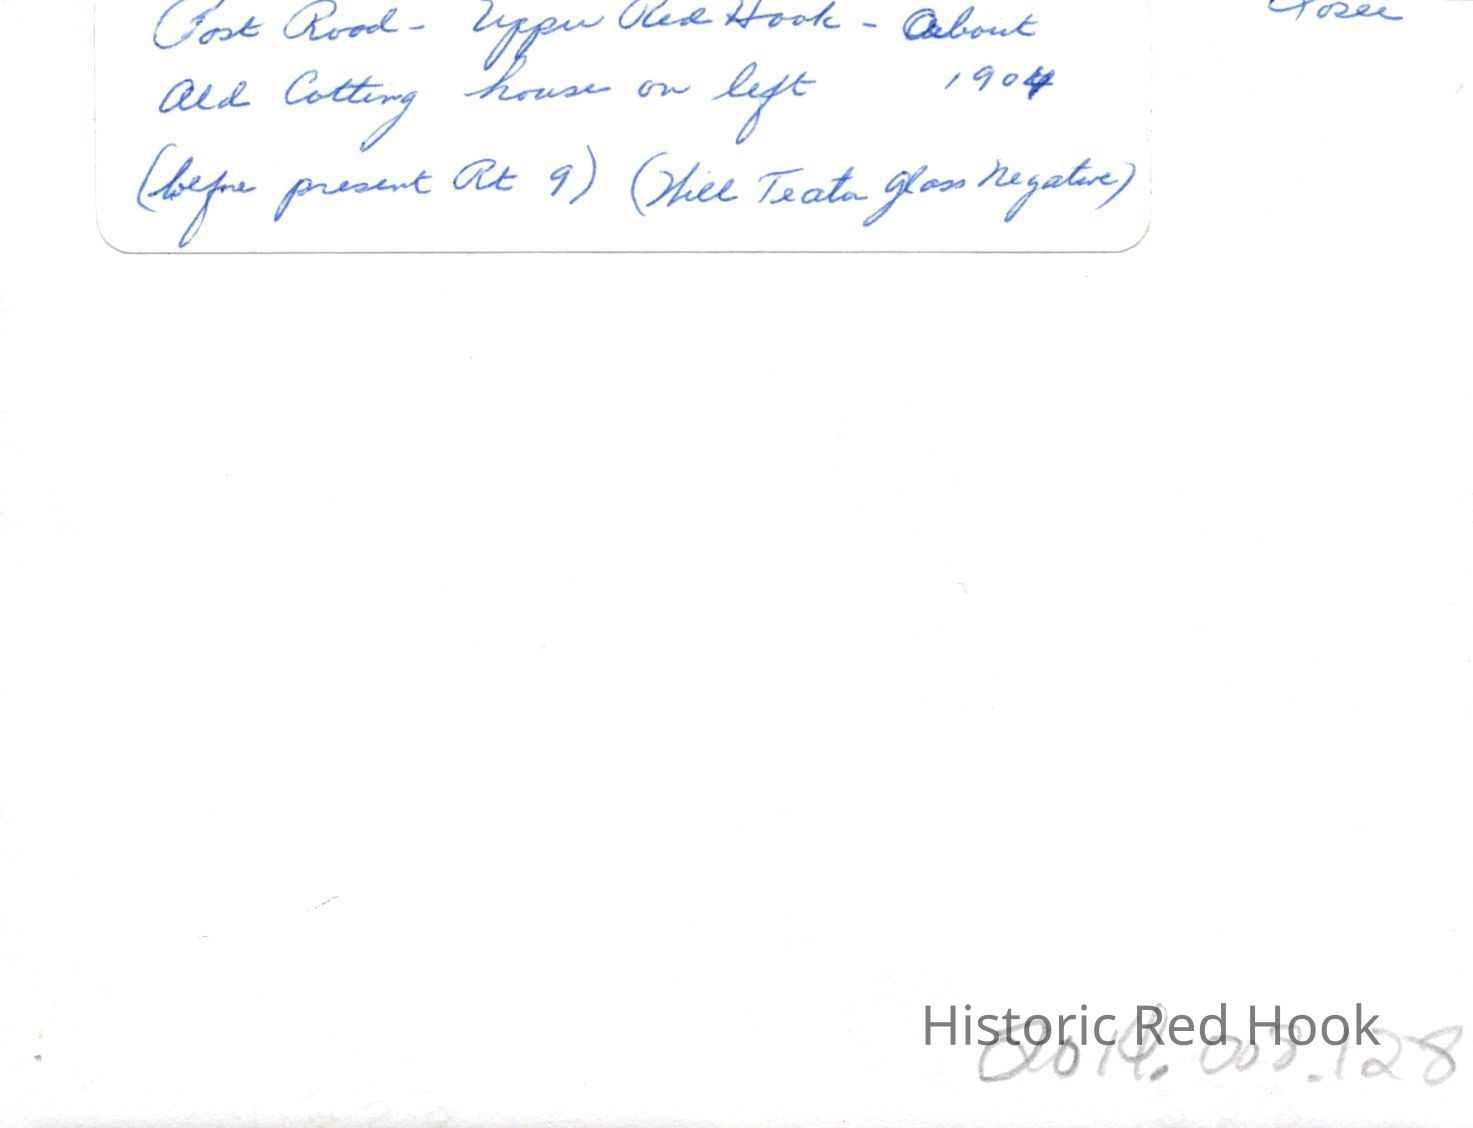 Post Road - Upper Red Hook - About
Old Cotting house on left 1904
(before present Rt 9) (Will Teator glass negative)
Historic Red Hook
2014.003.128